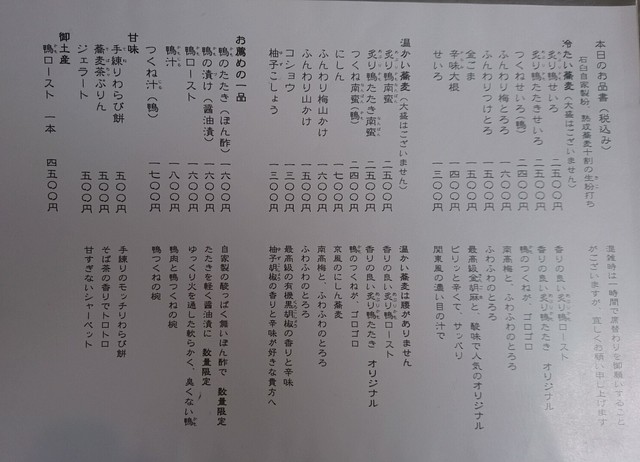 本日のお品書（税込み）
石臼自家製粉　熟成蕎麦十割の生粉打ち
混雑時は一時間で席替わりを御願いすること
がございますが、宜しくお願い申し上げます
冷たい蕎麦（大盛はございません）
炙り鴨せいろ　二五〇〇円　香りの良い炙り鴨ロースト
炙り鴨たたきせいろ　二五〇〇円　香りの良い炙り鴨たたき　オリジナル
つくねせいろ（鴨）　二四〇〇円　鴨のつくねが、ゴロゴロ
ふんわり梅とろろ　南高梅と、ふわふわのとろろ
ふんわりつけとろ　ふわふわのとろろ
金ごま　最高級金胡麻と、酸味で人気のオリジナル
辛味大根　ピリッと辛くて、サッパリ
せいろ　一三〇〇円　関東風の濃い目の汁で
温かい蕎麦（大盛はございません）　温かい蕎麦は腰がありません
炙り鴨南蛮　二五〇〇円　香りの良い炙り鴨ロースト
炙り鴨たたき南蛮　二五〇〇円　香りの良い炙り鴨たたき　オリジナル
つくね南蛮（鴨）　二四〇〇円　鴨のつくねが、ゴロゴロ
にしん　京風のにしん蕎麦
ふんわり梅山かけ　南高梅と、ふわふわのとろろ
ふんわり山かけ　一六〇〇円　ふわふわのとろろ
コショウ　一三〇〇円　最高級の有機黒胡椒の香りと辛味
柚子こしょう　一三〇〇円　柚子胡椒の香りと辛味が好きな貴方へ
お薦めの一品
鴨のたたき（ぽん酢）　一六〇〇円　自家製の酸っぱく無いぽん酢で　数量限定
鴨の漬け（醤油漬）　一六〇〇円　たたきを軽く醤油漬に　数量限定
鴨ロースト　一六〇〇円　ゆっくり火を通した軟らかく、臭くない鴨
鴨汁　一八〇〇円　鴨肉と鴨つくねの椀
つくね汁（鴨）　一七〇〇円　鴨つくねの椀
甘味
手練りわらび餅　五〇〇円　手練りのモッチリわらび餅
蕎麦茶ぷりん　五〇〇円　そば茶の香りでトロトロ
ジェラート　五〇〇円　甘すぎないシャーベット
御土産
鴨ロースト　一本　四五〇〇円